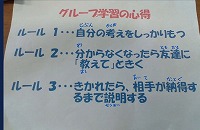 グループ学習の心得
ルール 1･･･自分の考えをしっかりもつ
ルール 2･･･分からなくなったら友達に
「教えて」ときく
ルール 3･･･きかれたら、相手が納得す
るまで説明する